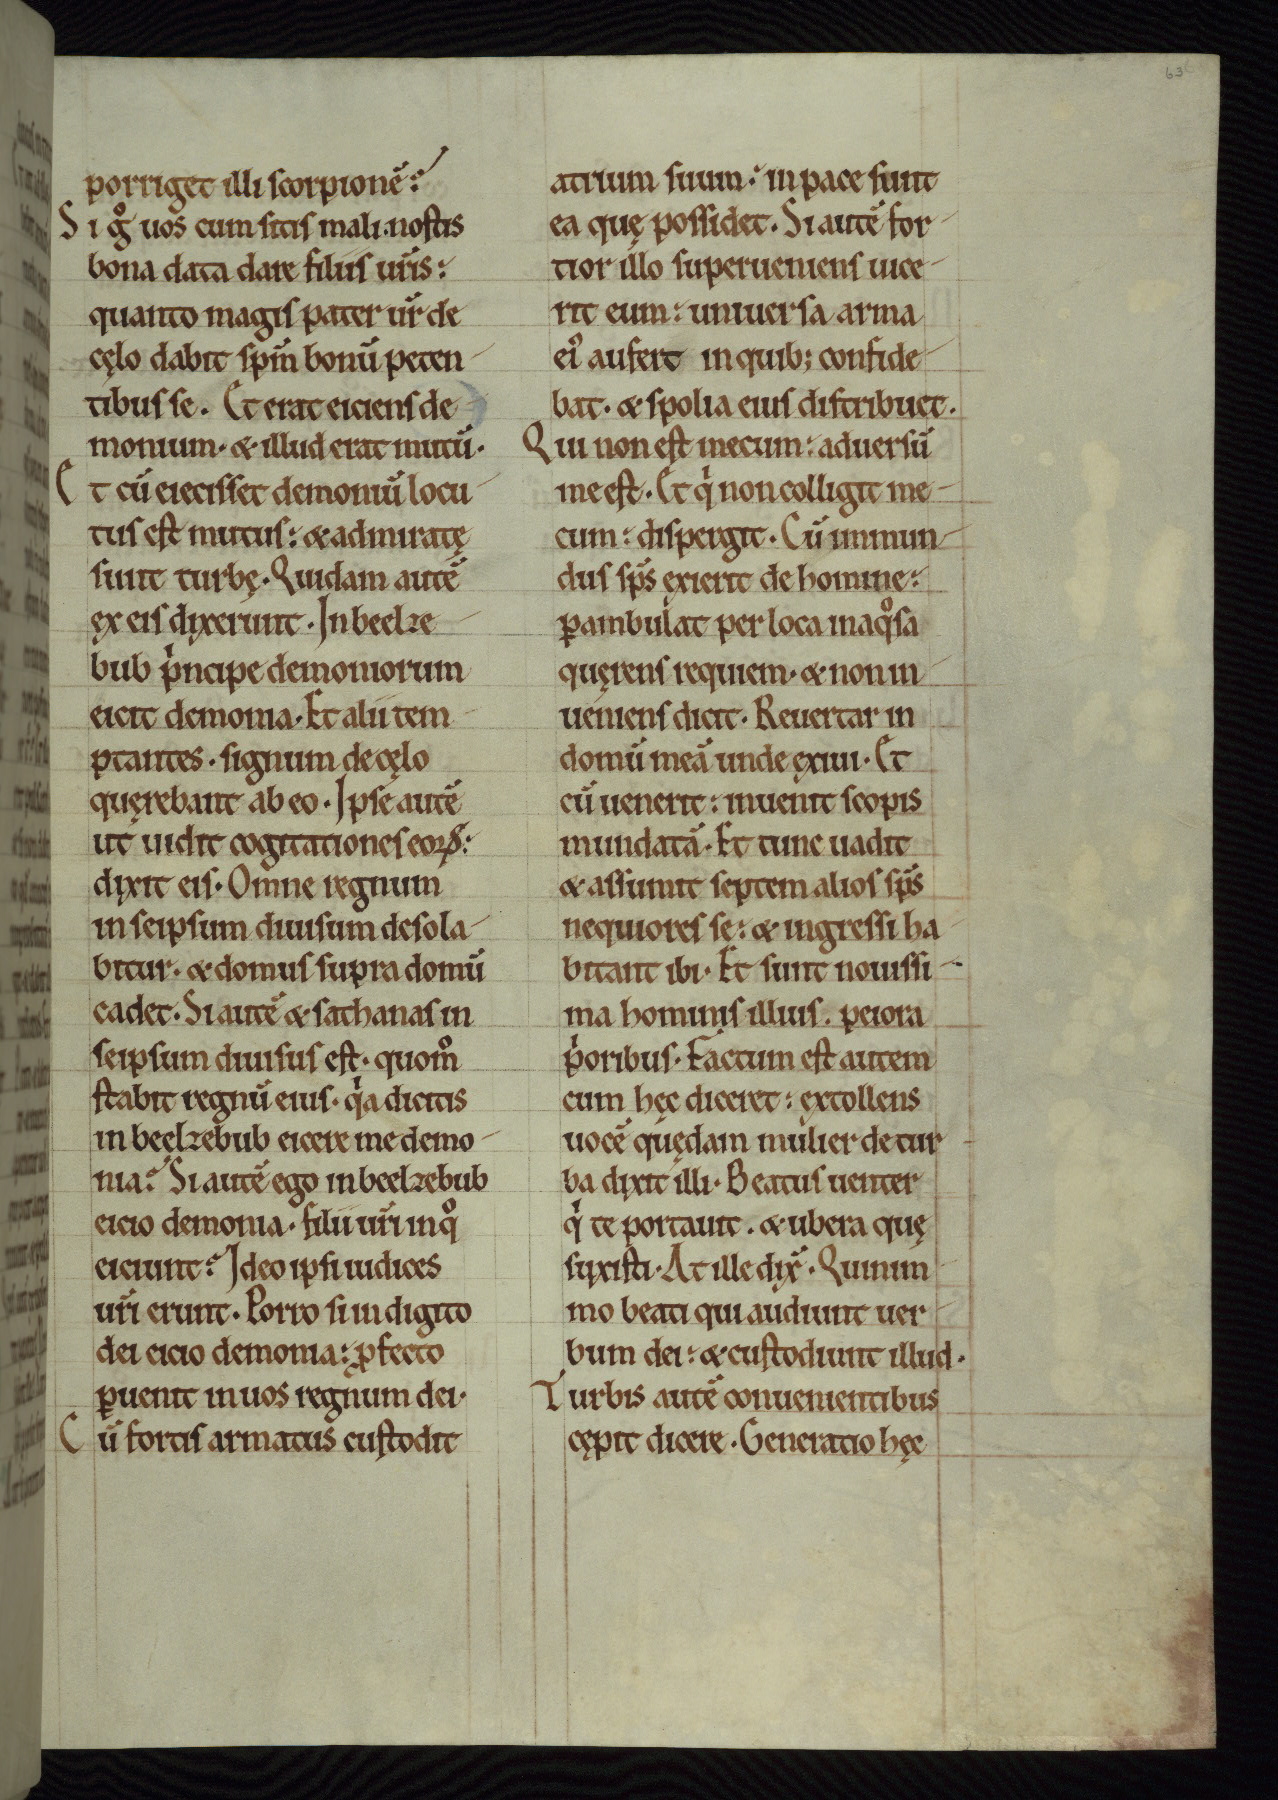 63
porriget illi scorpionē?
Si gͦ uos cum sitis mali. nostis
bona data dare filiis ur̄is:
quanto magis pater ur̄ de
cęlo dabit spm̄ bonū peten-
tibus se. Et erat eiciens de-
monium. & illud erat mutū.
Et cū eiecisset demoniū locu-
tus est mutus: & admiratę
sunt turbę. Quidam autē
ęx eis dixerunt. In beelze-
bub pͥncipe demoniorum
eicit demonia. Et alii tem-
ptantes. signum de cęlo
quęrebant ab eo. Ipse autē
ut uidit cogitationes eoꝝ:
dixit eis. Omne regnum
in seipsum diuisum desola-
bitur. & domus supra domū
cadet. Si autē & sathanas in
seipsum diuisus est. quom̊
stabit regnū eius. qͥa dicitis
in beelzebub eicere me demo-
nia? Si autē ego in beelzebub
eicio demonia. filii ur̄i in qͦ
eiciunt? Ideo ipsi iudices
ur̄i erunt. Porro si in digito
dei eicio demonia: ꝓfecto
ꝑuenit in uos regnum dei.
Cū fortis armatus custodit
atrium suum: in pace sunt
ea quę possidet. Si autē for-
tior illo superueniens uice-
rit eum: uniuersa arma
eiꝰ aufert in quib; confide-
bat. & spolia eius distribuet.
Qui non est mecum: aduersū
me est. Et qͥ non colligit me-
cum: dispergit. Cū immun-
dus sp̄s ęxierit de homine:
ꝑambulat per loca inaqͦsa
quęrens requiem. & non in-
ueniens dicit. Reuertar in
domū meā unde ęxiui. Et
cū uenerit: inuenit scopis
mundatā. Et tunc uadit
& assumit septem alios sp̄s
nequiores se: & ingressi ha-
bitant ibi. Et sunt nouissi-
ma hominis illius. peiora
pͥoribus. Factum est autem
cum hęc diceret: extollens
uocē quędam mulier de tur-
ba dixit illi. Beatus uenter
qͥ te portauit. & ubera quę
suxisti. At ille dix̄. Quinim-
mo beati qui audiunt uer-
bum dei: & custodiunt illud.
Turbis autē conuenientibus
cępit dicere. Generatio hęc